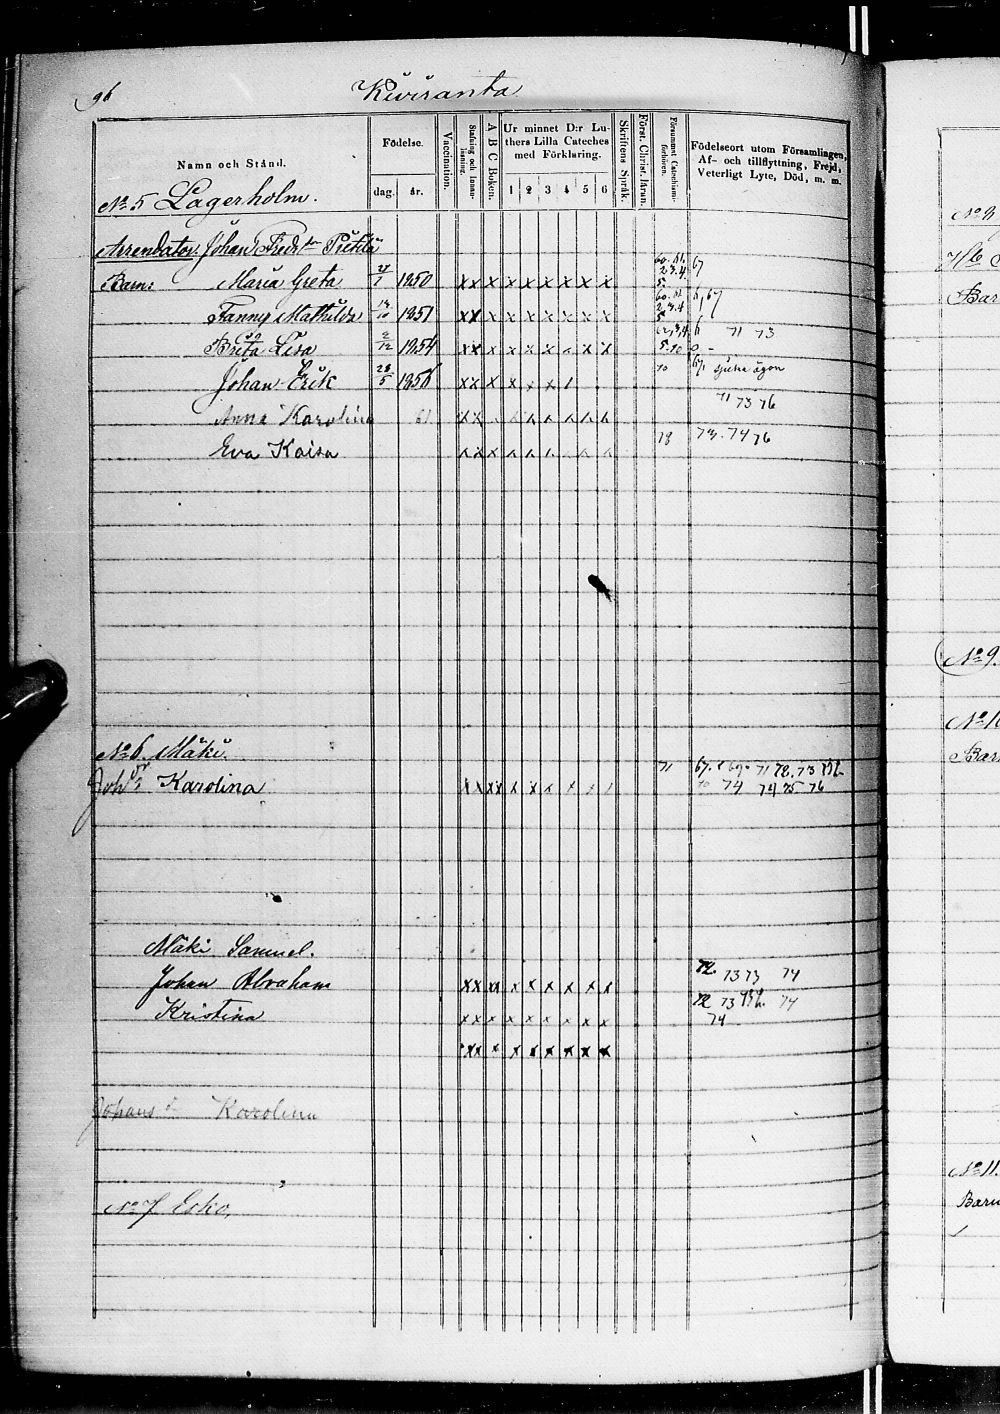 96
Kiviranta
Namn och Stånd.
Födelse.
dag.
år.
Vaccination.
Stafning och Innanläsning.
A B C Boken.
Ur minnet D:r Luthers Lilla Cateches med Förklaring.
1 2 3 4 5 6
Skriftens Språk.
Först. Christ. läran.
Försummat Catechismiförhören.
Födelseort utom Församlingen, Af- och tillflyttning, Frejd, Veterligt Lyte, Död, m. m.
No 5 Lagerholm.
Arrendator Johan Freds:son Pietilä
Barn: Maria Greta 1850 x x x x x x x x x 67
Fanny Mathilda 1851 x x x x x x x x x 67
Brita Lisa 2/12 1854 x x x x x x x x 71 73
Johan Erik 28/5 1856 x x x x x x 70 67, sjuka ögon
71 73 76
Anna Karolina 61
Eva Kaisa 73. 74 76
No 6. Mäki.
Joh:s dr Karolina 71 67. 69. 71 72. 73
74 74 75 76
Mäki Samuel.
Johan Abraham x x x x x x x x x 72. 73 73 74
Kristina x x x x x x x x x 72 73 74
74
Johans Karolina
No 7 Esko.
No 9.
Barn
No 11.
Barn